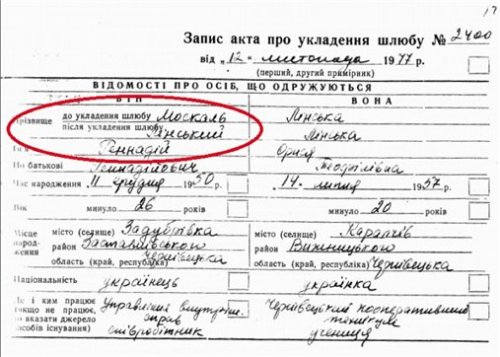 Запис акта про укладення шлюбу № 2400
від „12" листопада 1977 р.
(перший, другий примірник)
ВІДОМОСТІ ПРО ОСІБ, ЩО ОДРУЖУЮТЬСЯ
ВІН ВОНА
різвище до укладення шлюбу Москаль Лінська
після укладення шлюбу Лінський Лінська
Геннадій Орися
По батькові Геннадійович Теофілівна
Час народження 11 грудня 1950 14 липня 1957
Вік минуло 26 років минуло 20 років
Місце народження місто (селище) Задубрівка місто (селище) Карапчів
район Заставнівського район Вижницького
область (край, республіка) Чернівецька область (край, республіка) Чернівецька
Національність українець українка
Де і ким працює Управління внутрішн. Чернівецький кооперативний
якщо не працює, справ технікум
о вказати джерело співробітник учениця
засобів існування)